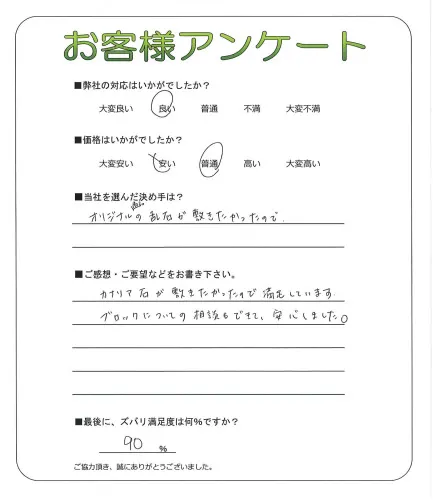 お客様アンケート
■弊社の対応はいかがでしたか？
大変良い 良い 普通 不満 大変不満
■価格はいかがでしたか？
大変安い 安い 普通 高い 大変高い
■当社を選んだ決め手は？
オリジナルの乱石が敷きたかったので.
■ご感想・ご要望などをお書き下さい。
カナリア石が敷きたかったので満足しています.
ブロックについての相談もできて、安心しました。
■最後に、ズバリ満足度は何％ですか？
90 %
ご協力頂き、誠にありがとうございました。